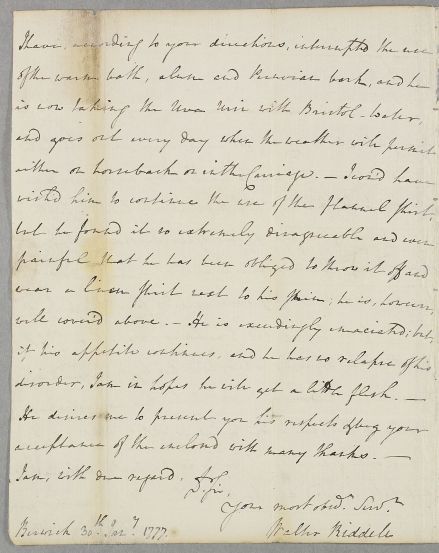 I have, according to your directions, interrupted the use
of the warm bath, alum and Peruvian bark, and he
is now taking the Uva Ursi with Bristol-water,
and goes out every day when the weather will permit
either on horseback or in the Carriage. — I could have
wish'd him to continue the use of the flannel Shirt,
but he found it so extremely disagreeable and even
painful that he has been obliged to throw it off and
wear a linen Shirt next to his Skin; he is, however,
well cover'd above. — He is exceedingly emaciated; but,
if his appetite continues, and he has no relapse of his
disorder, I am in hopes he will get a little flesh. —
He desires me to present you his respects & beg your
acceptance of the enclosed with many thanks. —
I am, with due regard,
Sir,
Your most obdt. Servt.
Walter Riddell
Berwick 30th Jany. 1777.